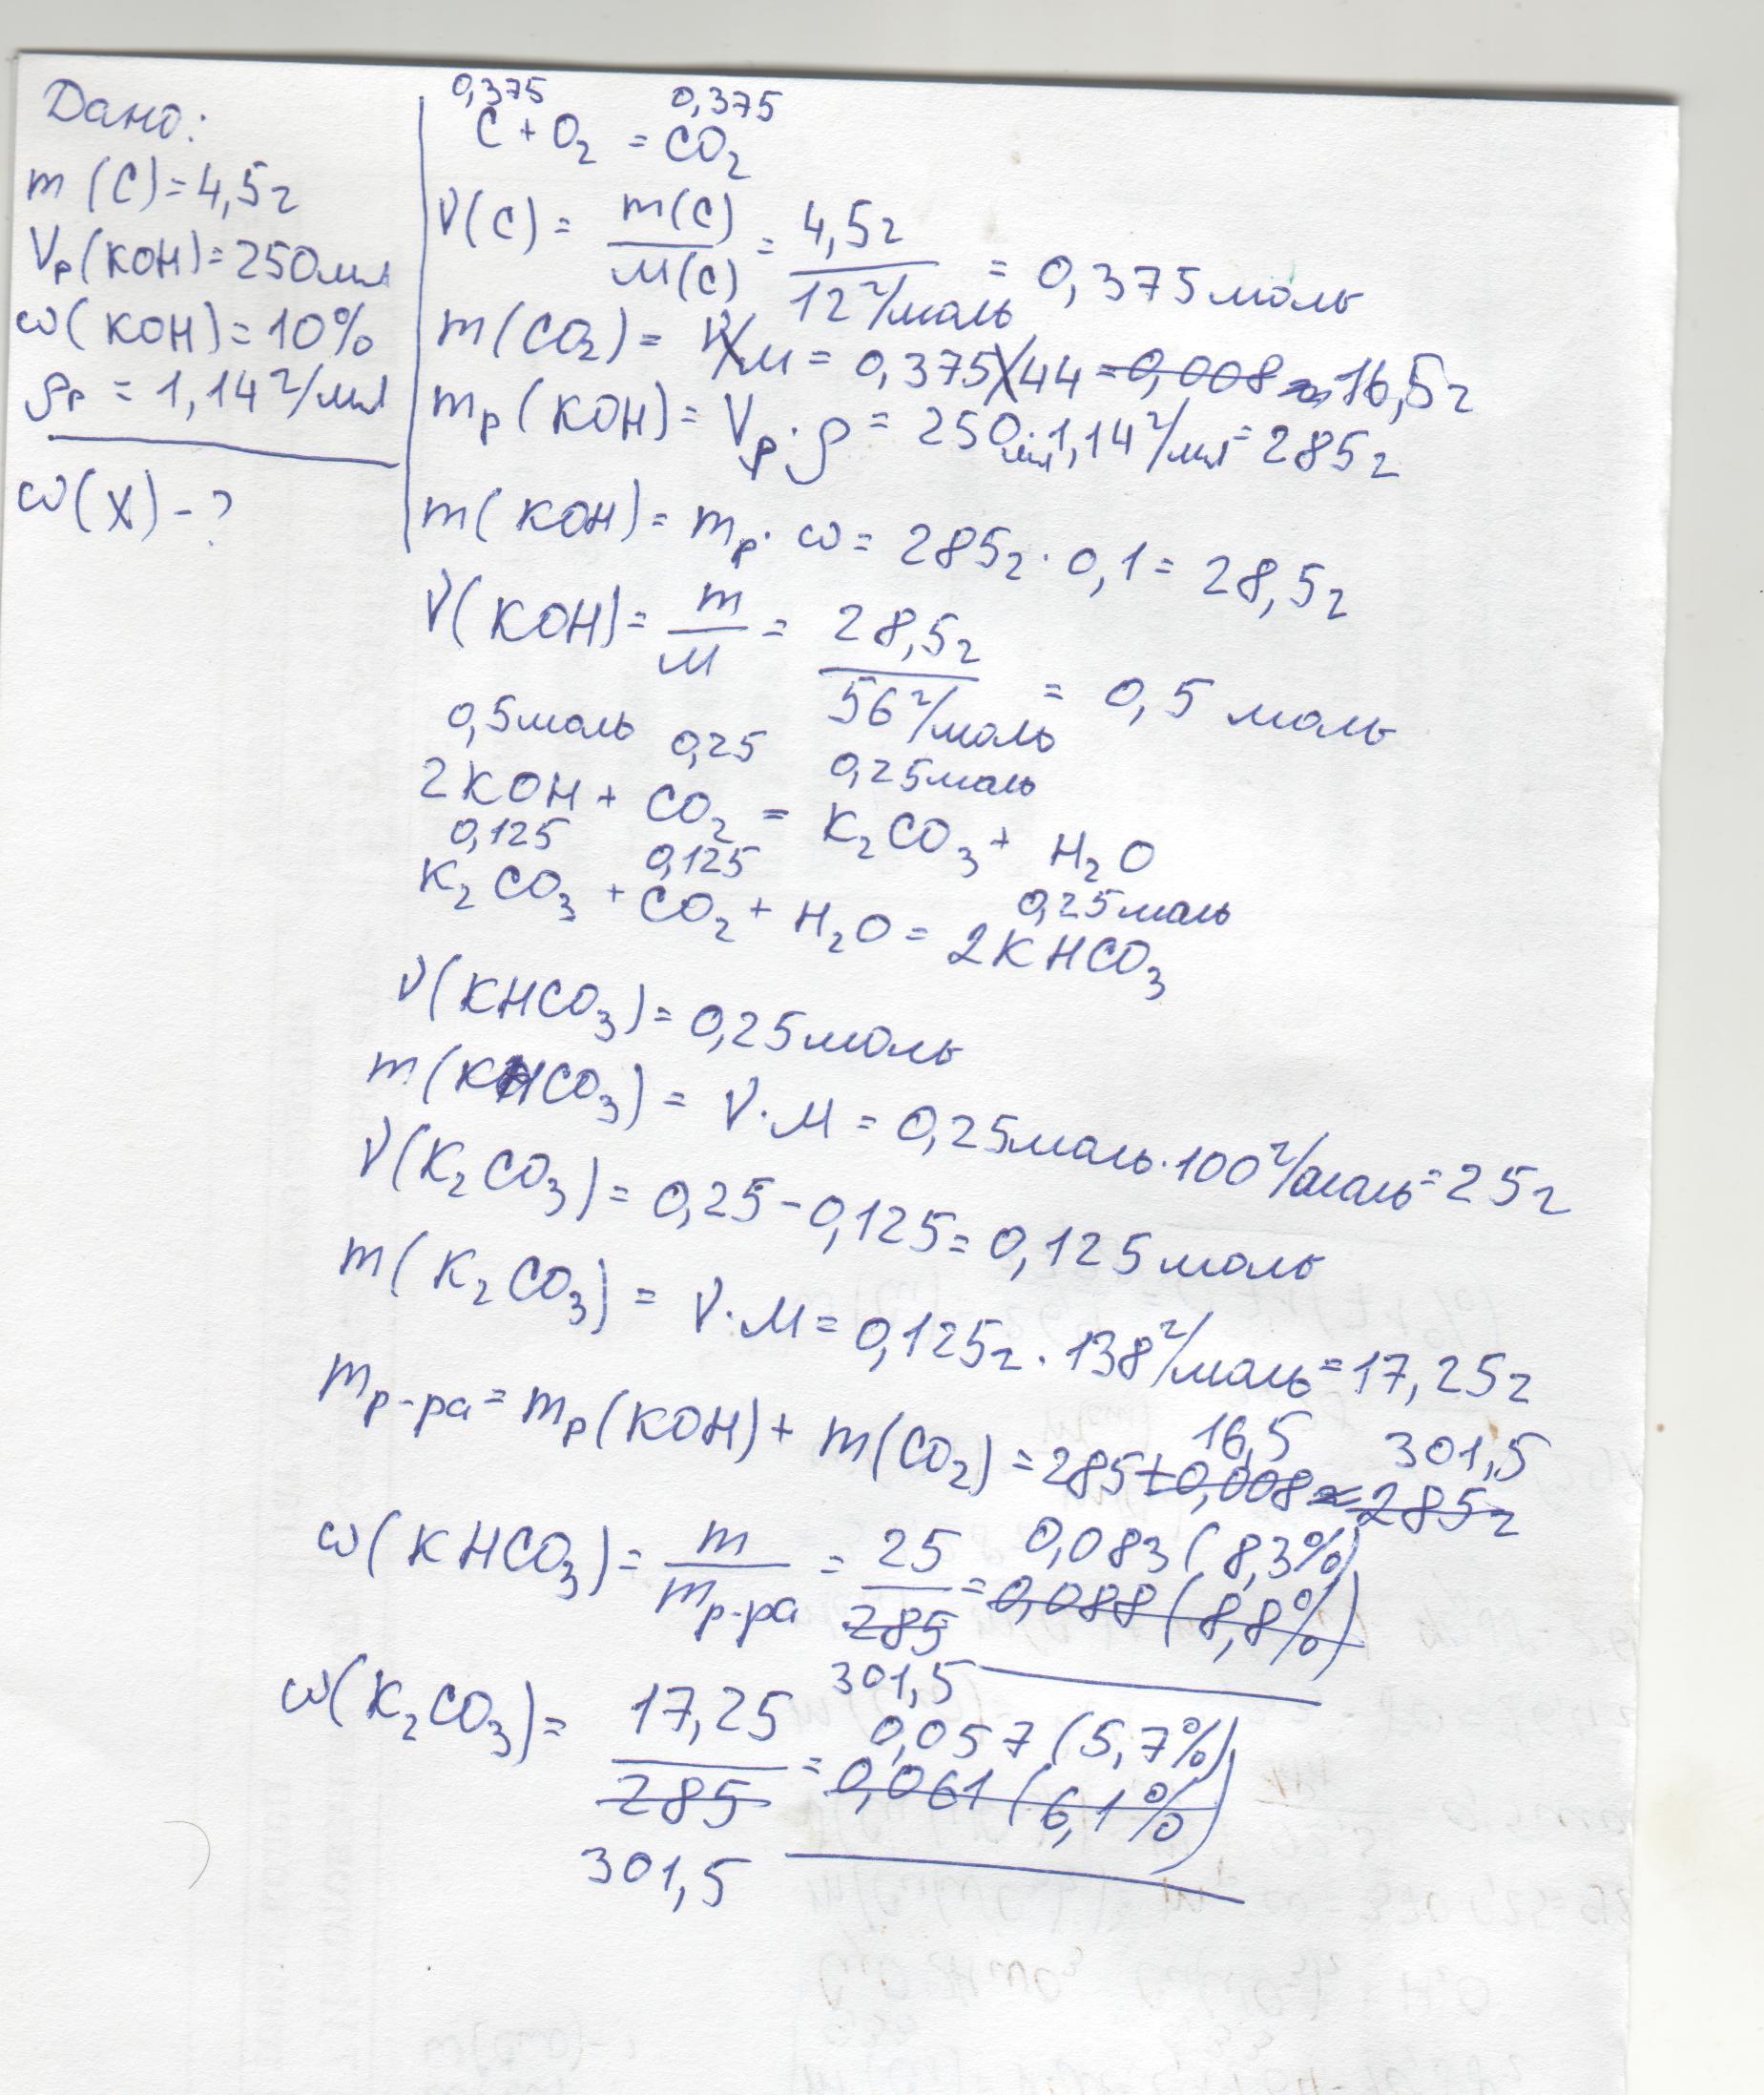 Дано:
m (C) = 4,5г
Vр (KOH) = 250мл
ω (KOH) = 10%
ρр = 1,14 г/мл
ω (X) - ?
0,375 0,375
C + O2 = CO2
ν(C) = m(C)/M(C) = 4,5г/12 г/моль = 0,375 моль
m(CO2) = ν×M = 0,375×44 = 0,008 ≈ 16,5г
mр (KOH) = Vр · ρ = 250мл · 1,14 г/мл = 285г
m(KOH) = mр · ω = 285г · 0,1 = 28,5г
ν(KOH) = m/M = 28,5г/56 г/моль = 0,5 моль
0,5моль 0,25 0,25моль
2KOH + CO2 = K2CO3 + H2O
0,125 0,125 0,25моль
K2CO3 + CO2 + H2O = 2KHCO3
ν(KHCO3) = 0,25моль
m(KHCO3) = ν·M = 0,25моль · 100 г/моль = 25г
ν(K2CO3) = 0,25 - 0,125 = 0,125 моль
m(K2CO3) = ν·M = 0,125г · 138 г/моль = 17,25г
16,5 301,5
mр-ра = mр(KOH) + m(CO2) = 285 + 0,008 ≈ 285г
0,083 (8,3%)
ω(KHCO3) = m/mр-ра = 25/285 = 0,088 (8,8%)
301,5
0,057 (5,7%)
ω(K2CO3) = 17,25/285 = 0,061 (6,1%)
301,5